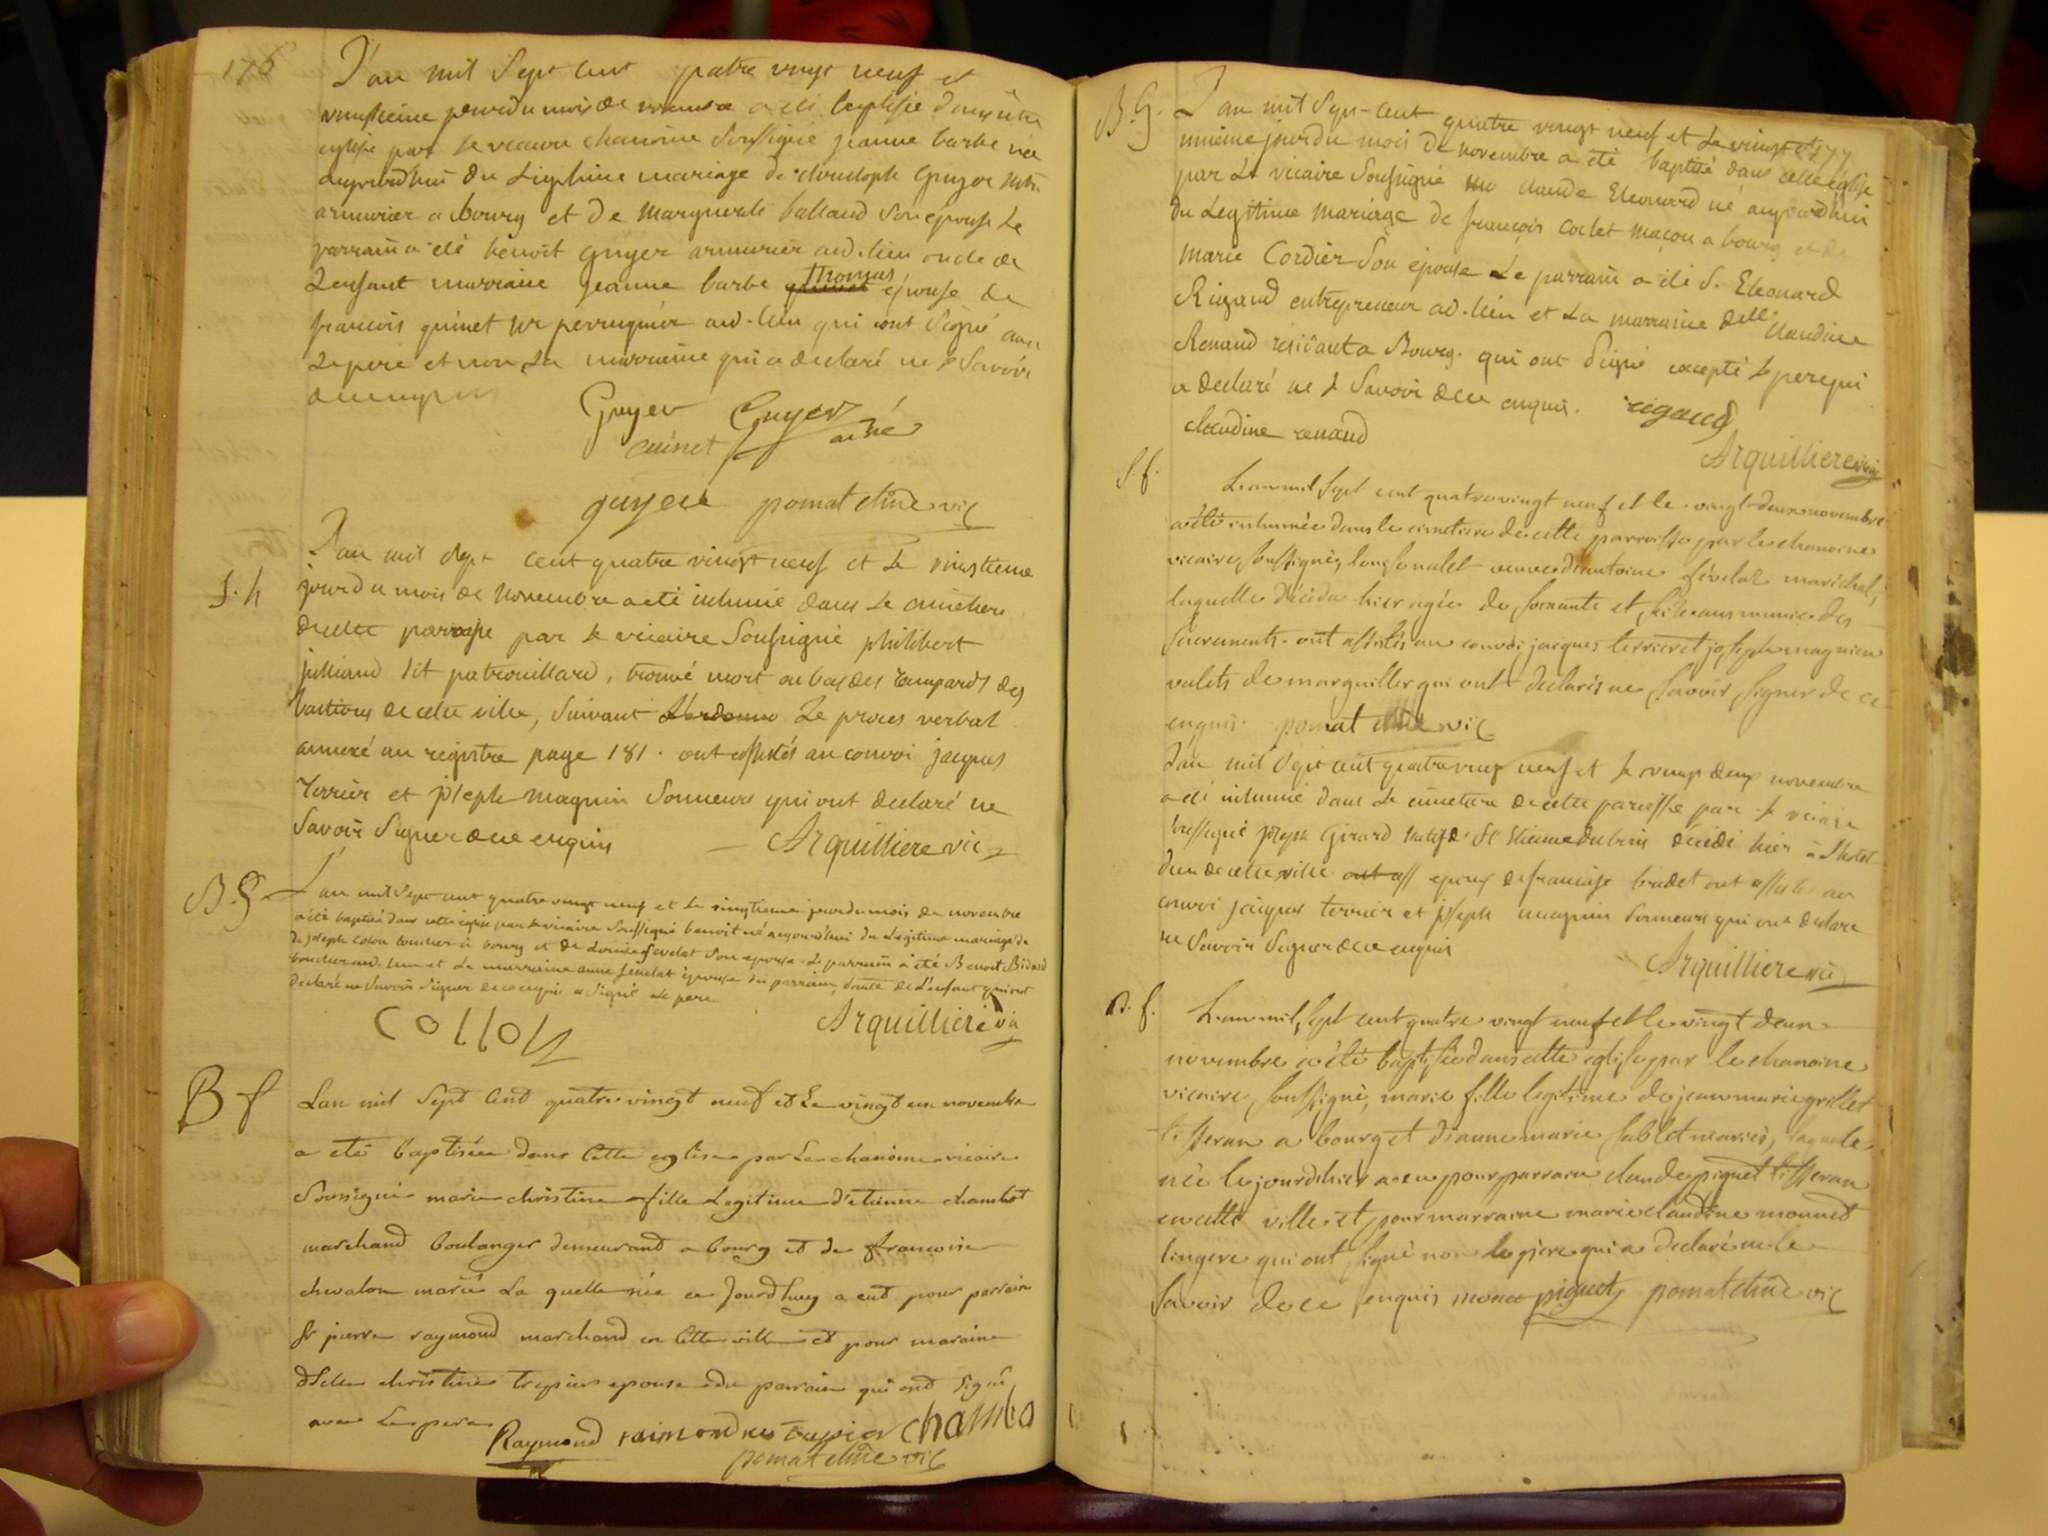 176
L'an mil sept cent quatre vingt neuf et
jour du mois de novembre a été baptisée dans cette
eglise par le vicaire chanoine soussigné jeanne barbe née
aujourd'huit du legitime mariage de christoph Guyer
armurier a bourg et de marguerite balland son épouse Le
parrain a été benoit guyer armurier aud. lieu oncle de
L'enfant marraine jeanne barbe thomas épouse de
francois quinet perruquier aud. lieu qui ont signé avec
Le pere et non La marraine qui a declaré ne le savoir
de ce enquis
Guyer Guyer
cuinet ainé
guyere pomat chne vic
S. h
L'an mil sept cent quatre vingt neuf et le vingtieme
jour du mois de novembre a eté inhumé dans Le cimetiere
de cette paroisse par le vicaire soussigné philibert
julliand dit patrouillard, trouvé mort au bas des rempards des
bastions de cette ville, suivant Le proces verbal
annexé au registre page 181. ont assistés au convoi jacques
Terrier et joseph magnin sonneurs qui ont declaré ne
savoir signer de ce enquis Arquilliere vic
B. G
L'an mil sept cent quatre vingt neuf et le vingtieme jour du mois de novembre
a été baptisé dans cette eglise par le vicaire soussigné benoit né aujourd'hui du Legitime mariage de
de joseph colon boucher à bourg et de Louise fevelat son epouse. Le parrain a été Benoit Bidard
boucher aud. lieu et La marraine anne fevelat épouse du parrain, tante de L'enfant qui ont
declaré ne savoir signer de ce enquis a signé Le pere
collon Arquilliere vic
B f
Lan mil sept cent quatre vingt neuf et Le vingt un novembre
a eté baptisée dans cette eglise par Le chanoine vicaire
soussigné marie christine fille Legitime d'etienne chambot
marchand boulanger demeurant a bourg et de francoise
chevalon mariés La quelle née ce jourdhuy a eut pour parrain
sr pierre raymond marchand en cette ville et pour maraine
dslle christine trepier epouse du parrain qui ont signé
avec Le pere
Raymond raimond née trepier chamba
pomat chne vic
B. G.
L'an mil sept cent quatre vingt neuf et Le vingt et 177
unieme jour du mois de novembre a été baptisé dans cette église
par Le vicaire soussigné claude Eleonard né aujourd'hui
du Legitime mariage de françois collet maçon a bourg et de
marie Cordier son épouse Le parrain a été S. Eleonard
Rigaud entrepreneur ad. lieu et La marraine delle claudine
Renaud résidant a Bourg. qui ont signé excepté le pere qui
a declaré ne le savoir de ce enquis. rigaud
claudine renaud
Arquilliere vic
S f.
L'an mil sept cent quatre vingt neuf et le vingt deux novembre
a été inhumée dans le cimetiere de cette parroisse par le chanoine
vicaire soussigné, veuve d'antoine fevelat maréchal,
laquelle décéda hier agée de soixante et ans munie des
sacrements. ont assistés au convoi jacques terrier et joseph magnien
valets de marguillier qui ont declarés ne savoir signer de ce
enquis. pomat chne vic
L'an mil sept cent quatre vingt neuf et le vingt deux novembre
a été inhumé dans Le cimetiere de cette paroisse par le vicaire
soussigné joseph Girard natif de St Etienne du bois décédé hier à L'hotel
dieu de cette ville epoux de francoise bridet ont assisté au
convoi jacques terrier et joseph magnin sonneurs qui ont declaré
ne savoir signer de ce enquis
Arquilliere vic
B. f.
L'an mil sept cent quatre vingt neuf et le vingt deux
novembre a été baptisée dans cette eglise par le chanoine
vicaire, soussigné, marie fille legitime de jean marie grillet
tisseran a bourg et d'anne marie sablet mariés, laquelle
née le jour d'hier a eu pour parrain claude piquet tisseran
en cette ville et pour marraine marie claudine monnet
lingere qui ont signé non le pere qui a declaré ne le
savoir de ce enquis monet piquet pomat chne vic